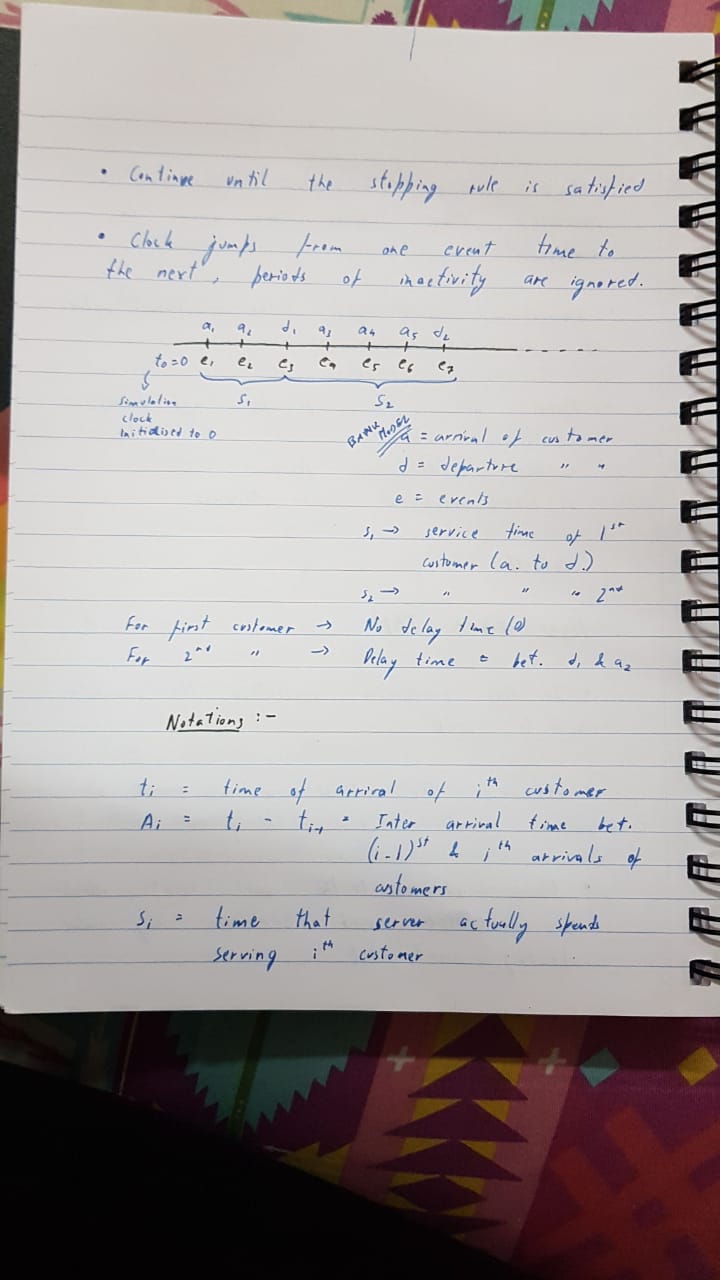 • Continue until the stopping rule is satisfied
• Clock jumps from one event time to
the next, periods of inactivity are ignored.
a₁ a₂ d₁ a₃ a₄ a₅ d₂
t₀=0 e₁ e₂ e₃ e₄ e₅ e₆ e₇
S₁ S₂
Simulation
clock
initialised to 0
BANK MODEL
a = arrival of customer
d = departure " "
e = events
S₁ → service time of 1st
customer (a. to d.)
S₂ → " " " 2nd
For first customer → No delay time (0)
For 2nd " → Delay time = bet. d₁ & a₂
Notations :-
ti = time of arrival of ith customer
Ai = ti - ti-1 = Inter arrival time bet.
(i-1)st & ith arrivals of
customers
Si = time that server actually spends
serving ith customer